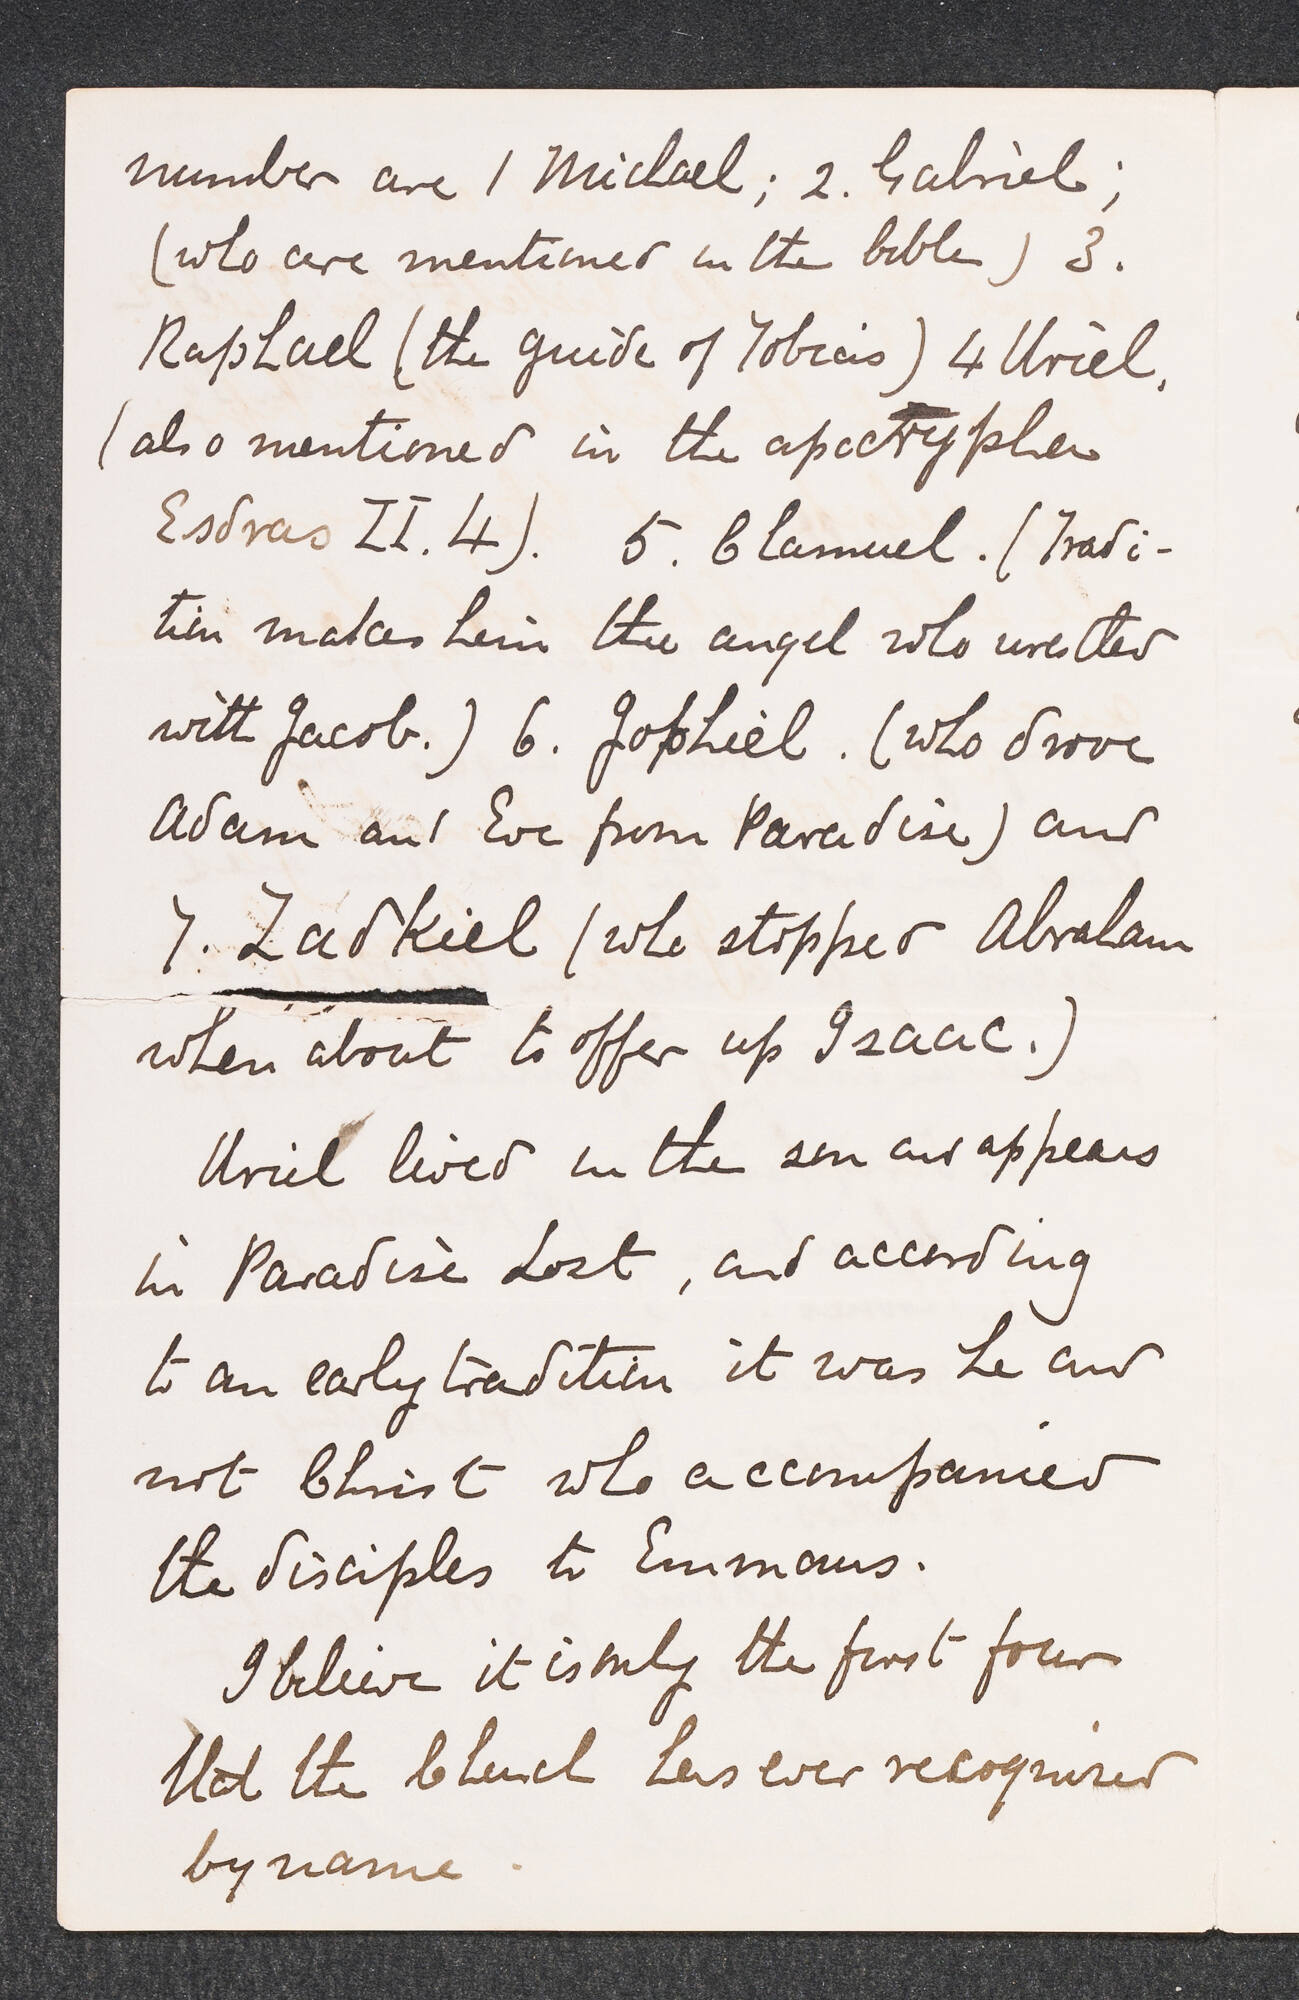 number are 1 Michael; 2. Gabriel;
(who are mentioned in the bible) 3.
Raphael (the guide of Tobias) 4 Uriel,
(also mentioned in the apocrypha
Esdras II. 4). 5. Chamuel. (Tradi-
tion makes him the angel who wrestled
with Jacob.) 6. Jophiel. (who drove
Adam and Eve from Paradise) and
7. Zadkiel (who stopped Abraham
when about to offer up Isaac.)
Uriel lived in the sun and appears
in Paradise Lost, and according
to an early tradition it was he and
not Christ who accompanied
the disciples to Emmaus.
I believe it is only the first four
that the Church has ever recognized
by name.